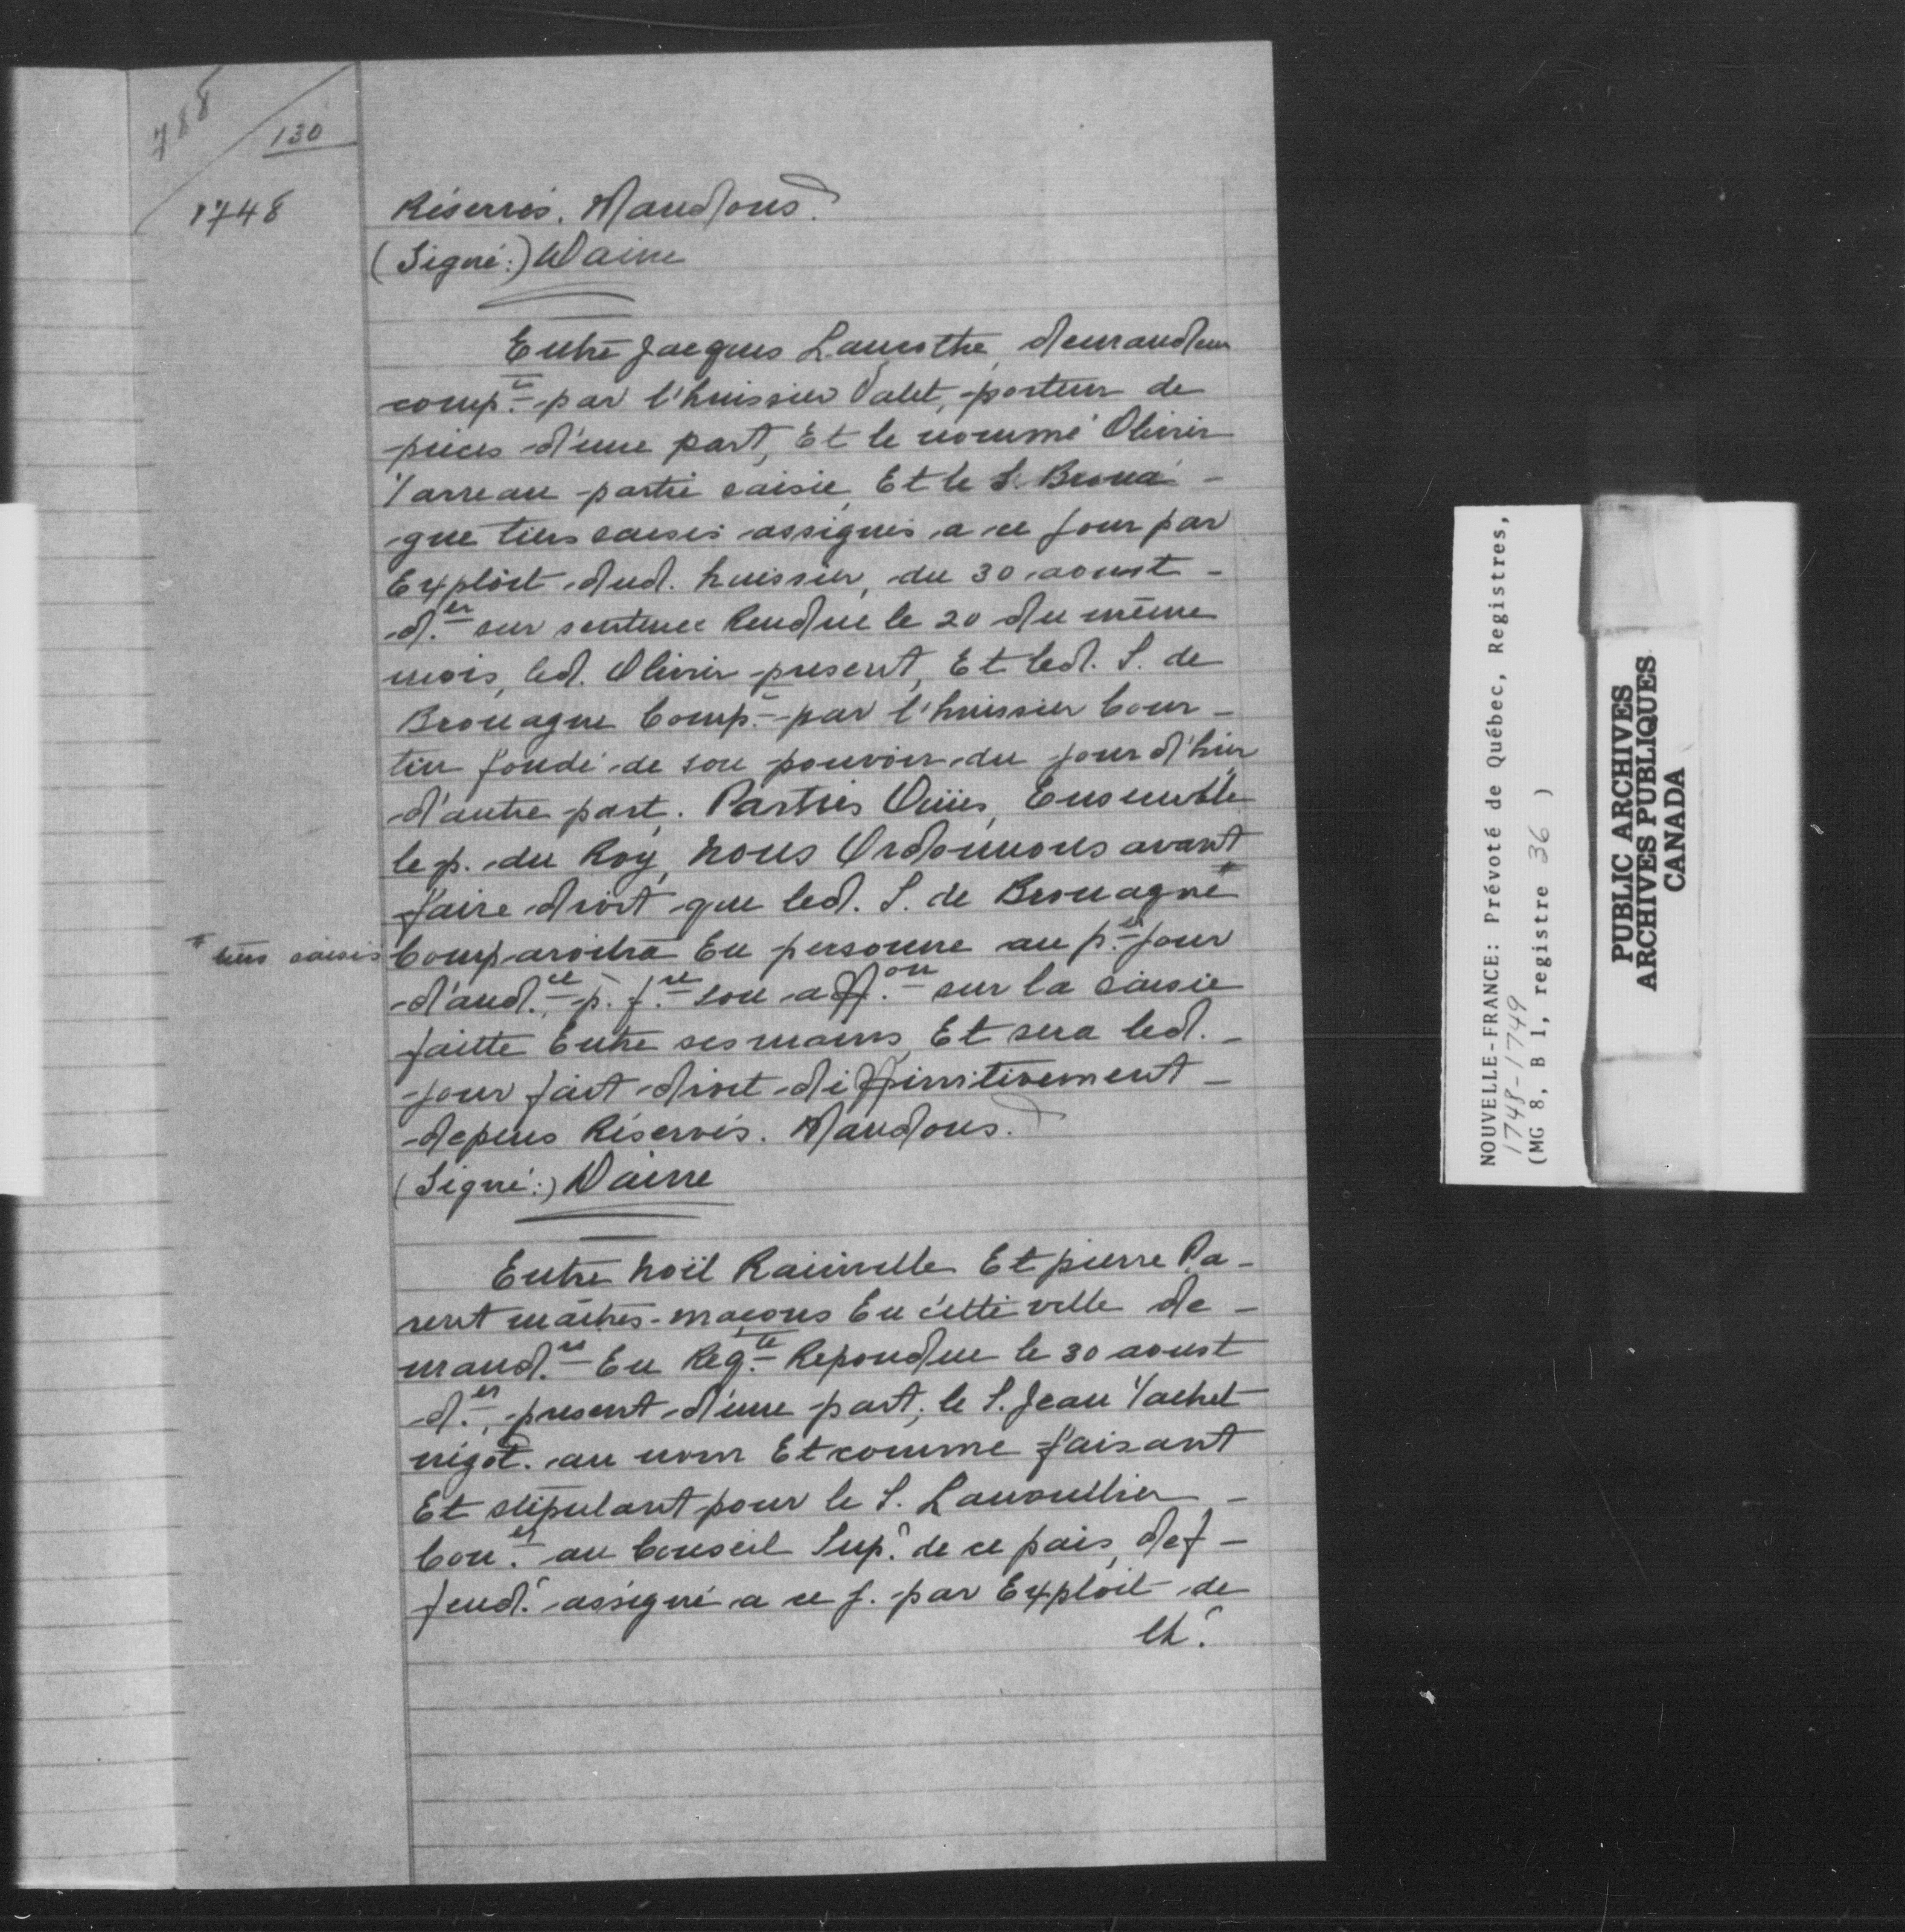 788
130
1748
Réservés. Mandons.
(Signé:) Daine
Entre Jacques Lamothe, demandeur
comp.^t par l'huissier Valet, porteur de
pièces d'une part, Et le nommé Olivier
Tarreau partie saisie, Et le S. Broua-
gue tiers saisis assignés a ce jour par
Exploit dud. huissier, du 30 aoust
d.^er sur sentence Rendue le 20 du même
mois, led. Olivier present, Et led. S. de
Brouague Comp.^t par l'huissier Cour-
tin fondé de son pouvoir du jour d'hier
d'autre part. Parties Ouïes, Ensemble
le p. du Roy, nous Ordonnons avant
faire droit que led. S. de Brouague*
* tiers saisis
Comparoitra En personne au p.^er jour
d'aud.^ce p. f.^re son aff.^on sur la saisie
faitte Entre ses mains, Et sera led.
jour fait droit diffinitivement
depens Réservés. Mandons.
(Signé:) Daine
Entre Noël Rainville Et pierre Pa-
rent maîtres-maçons En cette ville de-
mand.^rs En Req.^te Repondue le 30 aoust
d.^er, present d'une part; le S. Jean Tachet
négot. au nom Et comme faisant
Et stipulant pour le S. Lanoullier
Con.^er au Conseil Sup.^r de ce païs, def-
fend.^r assigné a ce j. par Exploit de
NOUVELLE-FRANCE: Prévoté de Québec, Registres,
1748-1749
(MG 8, B 1, registre 36 )
PUBLIC ARCHIVES
ARCHIVES PUBLIQUES
CANADA